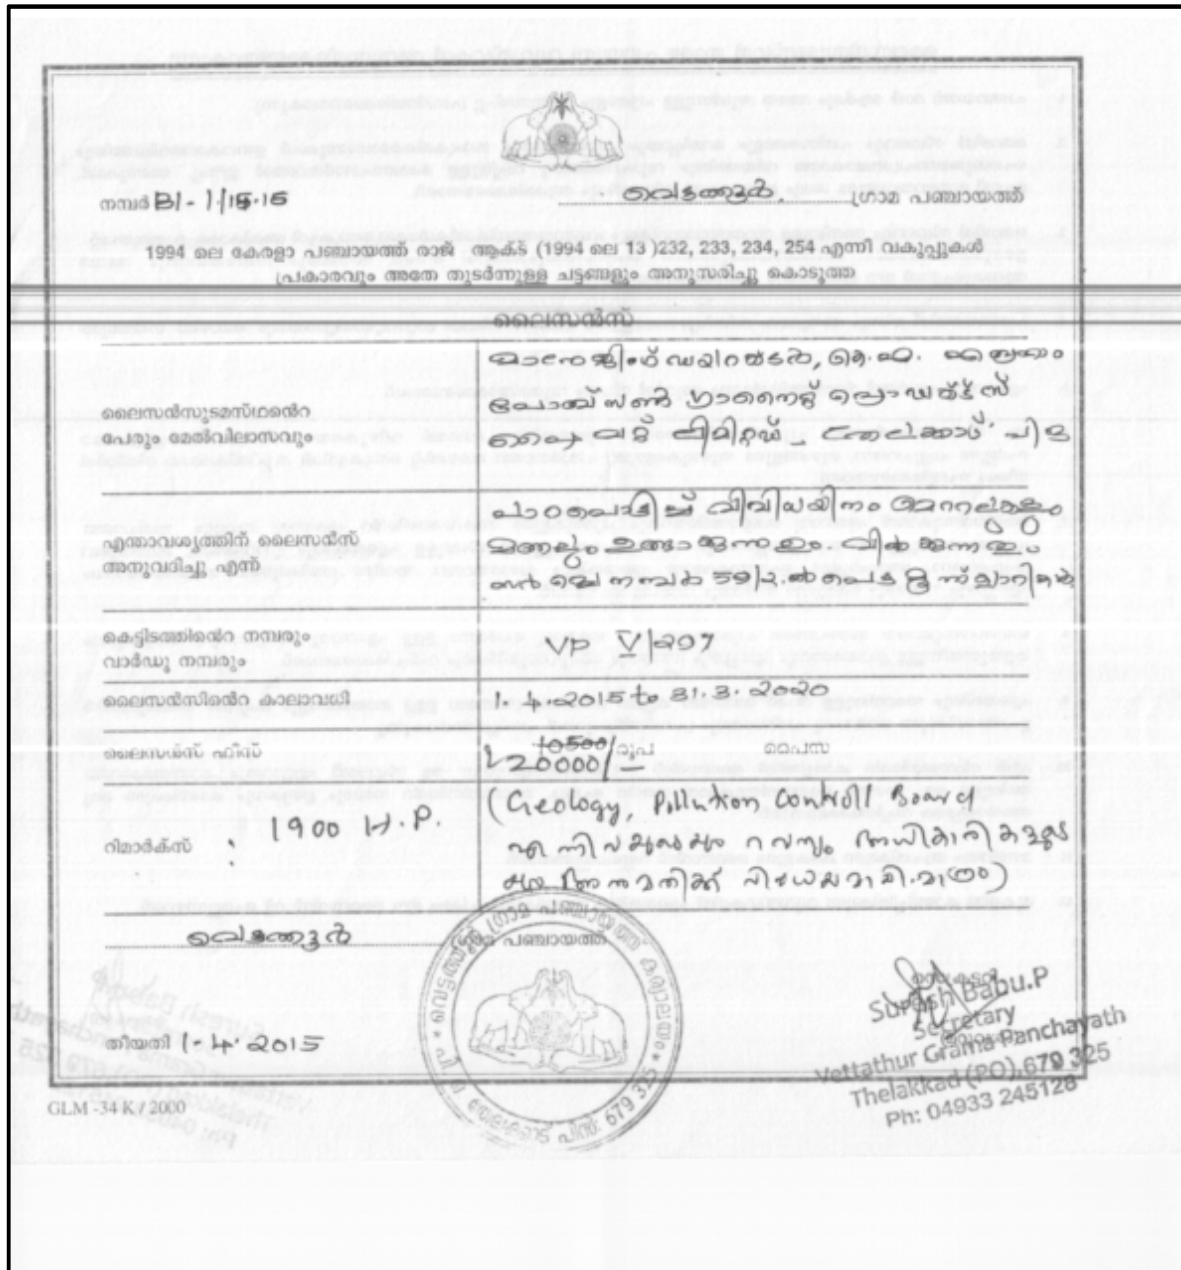 നമ്പർ B1-1/15-16
വെട്ടത്തൂർ ഗ്രാമ പഞ്ചായത്ത്
1994 ലെ കേരളാ പഞ്ചായത്ത് രാജ് ആക്ട് (1994 ലെ 13 )232, 233, 234, 254 എന്നി വകുപ്പുകൾ
പ്രകാരവും അതേ തുടർന്നുള്ള ചട്ടങ്ങളും അനുസരിച്ചു കൊടുത്ത
ലൈസൻസ്
ലൈസൻസുടമസ്ഥൻെറ
പേരും മേൽവിലാസവും
മാനേജിംഗ് ഡയറക്ടർ,
ഗ്രാനൈറ്റ് പ്രൊഡക്ട്സ്
പ്രൈവറ്റ് ലിമിറ്റഡ്, തേലക്കാട്
എന്താവശ്യത്തിന് ലൈസൻസ്
അനുവദിച്ചു എന്ന്
പാറപൊടിച്ച് വിവിധയിനം മെറ്റലുകളും
മണലും ഉണ്ടാക്കുന്നതും വിൽക്കുന്നതും
നമ്പർ 59/2 ൽപെട്ട
കെട്ടിടത്തിൻെറ നമ്പരും
വാർഡു നമ്പരും
VP V/207
ലൈസൻസിൻെറ കാലാവധി
1.4.2015 to 31.3.2020
ലൈസൻസ് ഫീസ്
10500/ രൂപ പൈസ
20000/-
റിമാർക്സ് : 1900 H.P.
(Geology, Pollution Controll Board
എന്നിവരുടെയും റവന്യൂ അധികാരികളുടെ
യും അനുമതിക്ക് വിധേയമായി മാത്രം)
വെട്ടത്തൂർ ഗ്രാമ പഞ്ചായത്ത്
വെട്ടത്തൂർ ഗ്രാമ പഞ്ചായത്ത് കാര്യാലയം
തേലക്കാട് പിൻ: 679 325
തീയതി 1.4.2015
Suresh Babu.P
Secretary
Vettathur Grama Panchayath
Thelakkad (PO),679 325
Ph: 04933 245128
GLM -34 K / 2000